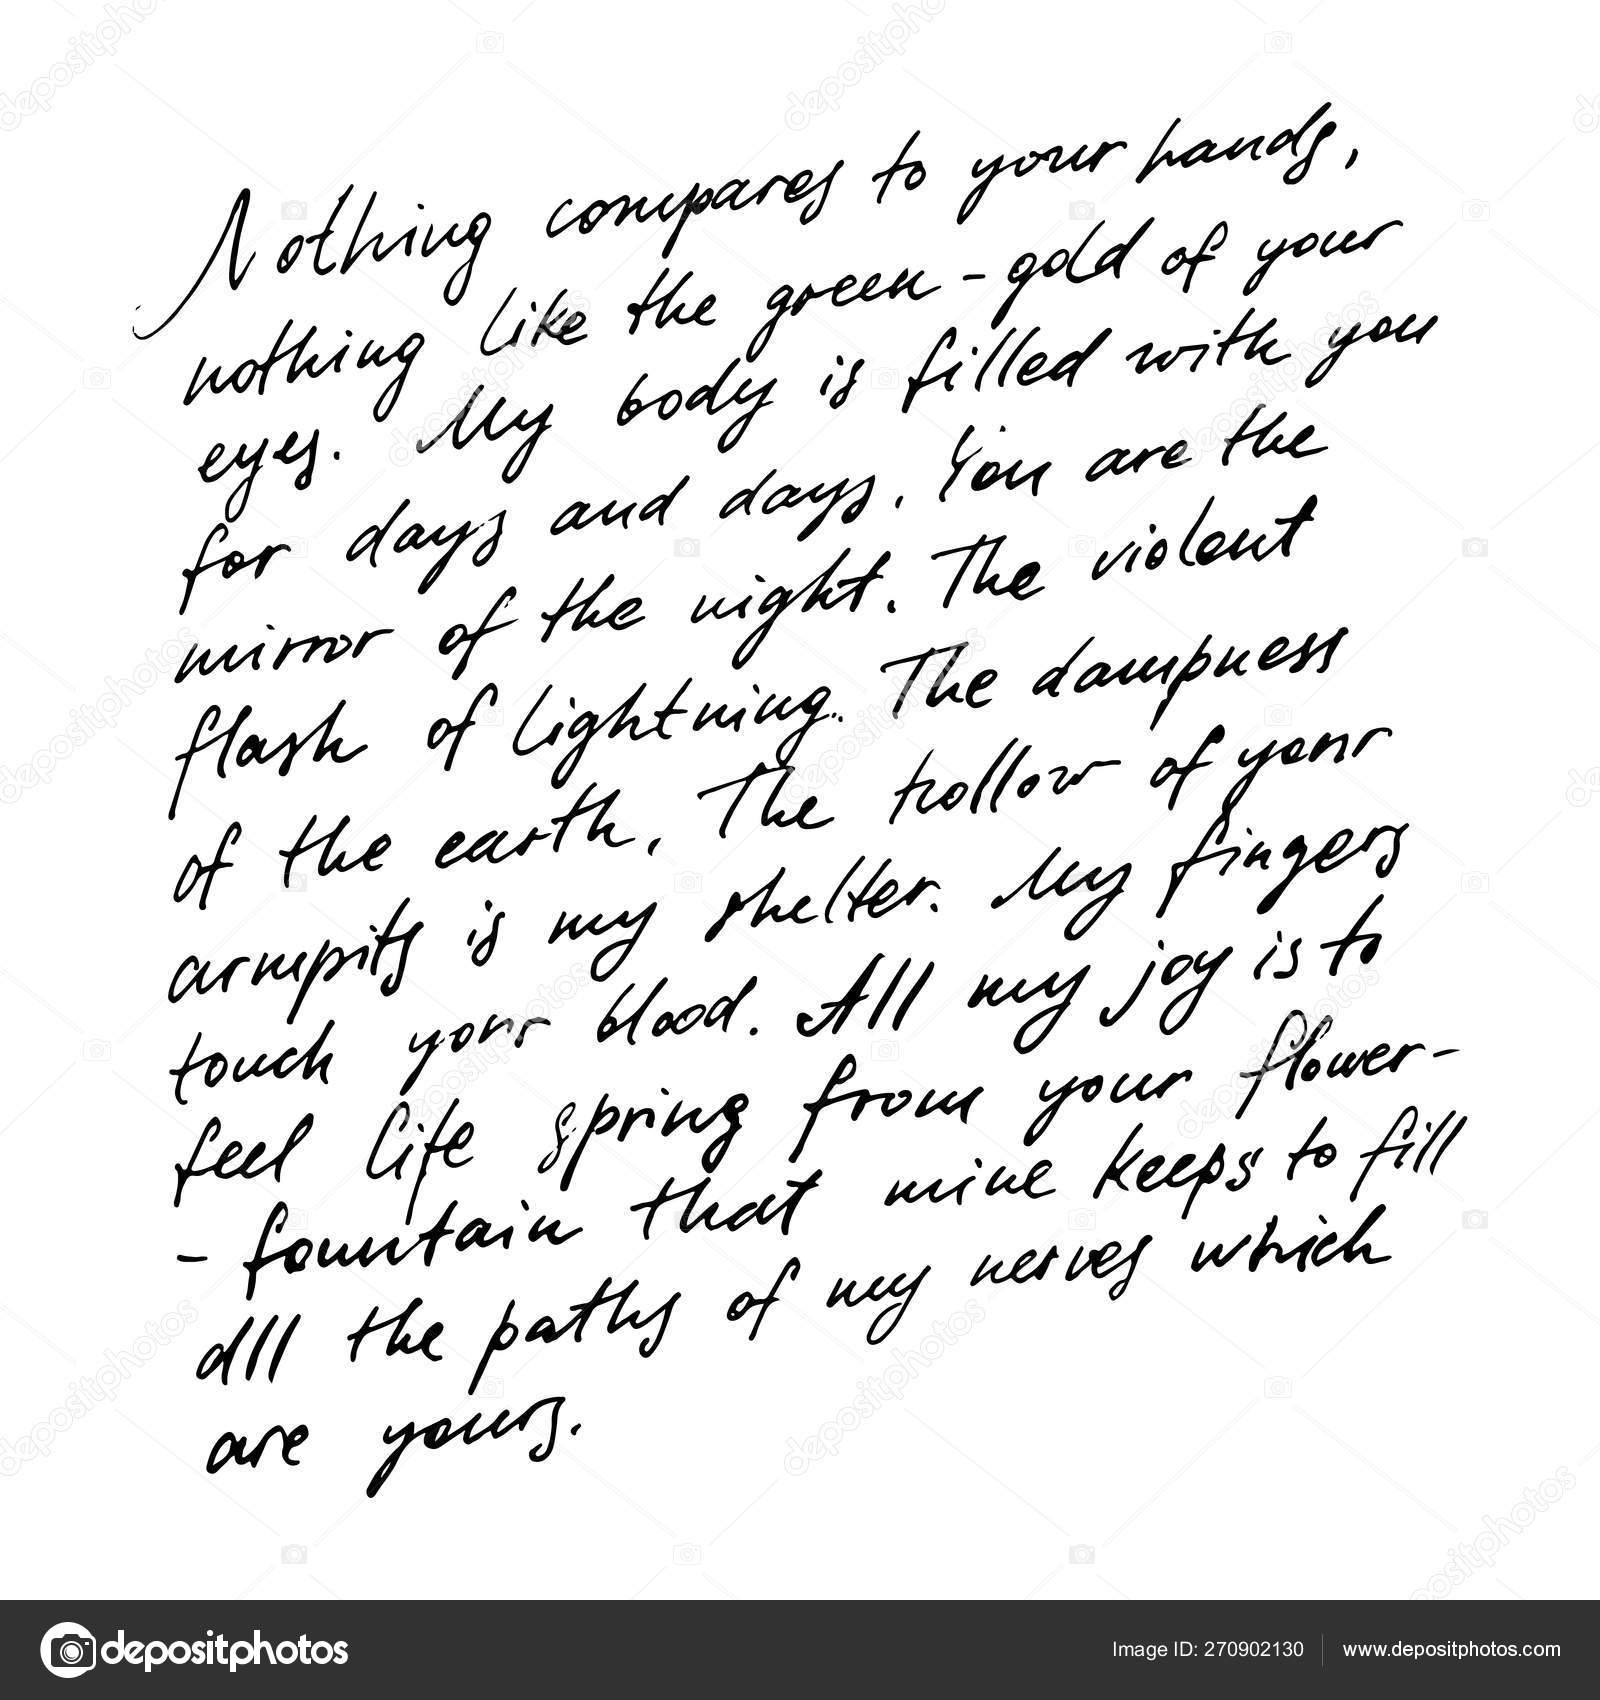 Nothing compares to your hands,
nothing like the green-gold of your
eyes. My body is filled with you
for days and days. You are the
mirror of the night. The violent
flash of lightning. The dampness
of the earth. The hollow of your
armpits is my shelter. My fingers
touch your blood. All my joy is to
feel life spring from your flower-
- fountain that mine keeps to fill
all the paths of my nerves which
are yours.
depositphotos
Image ID: 270902130 www.depositphotos.com